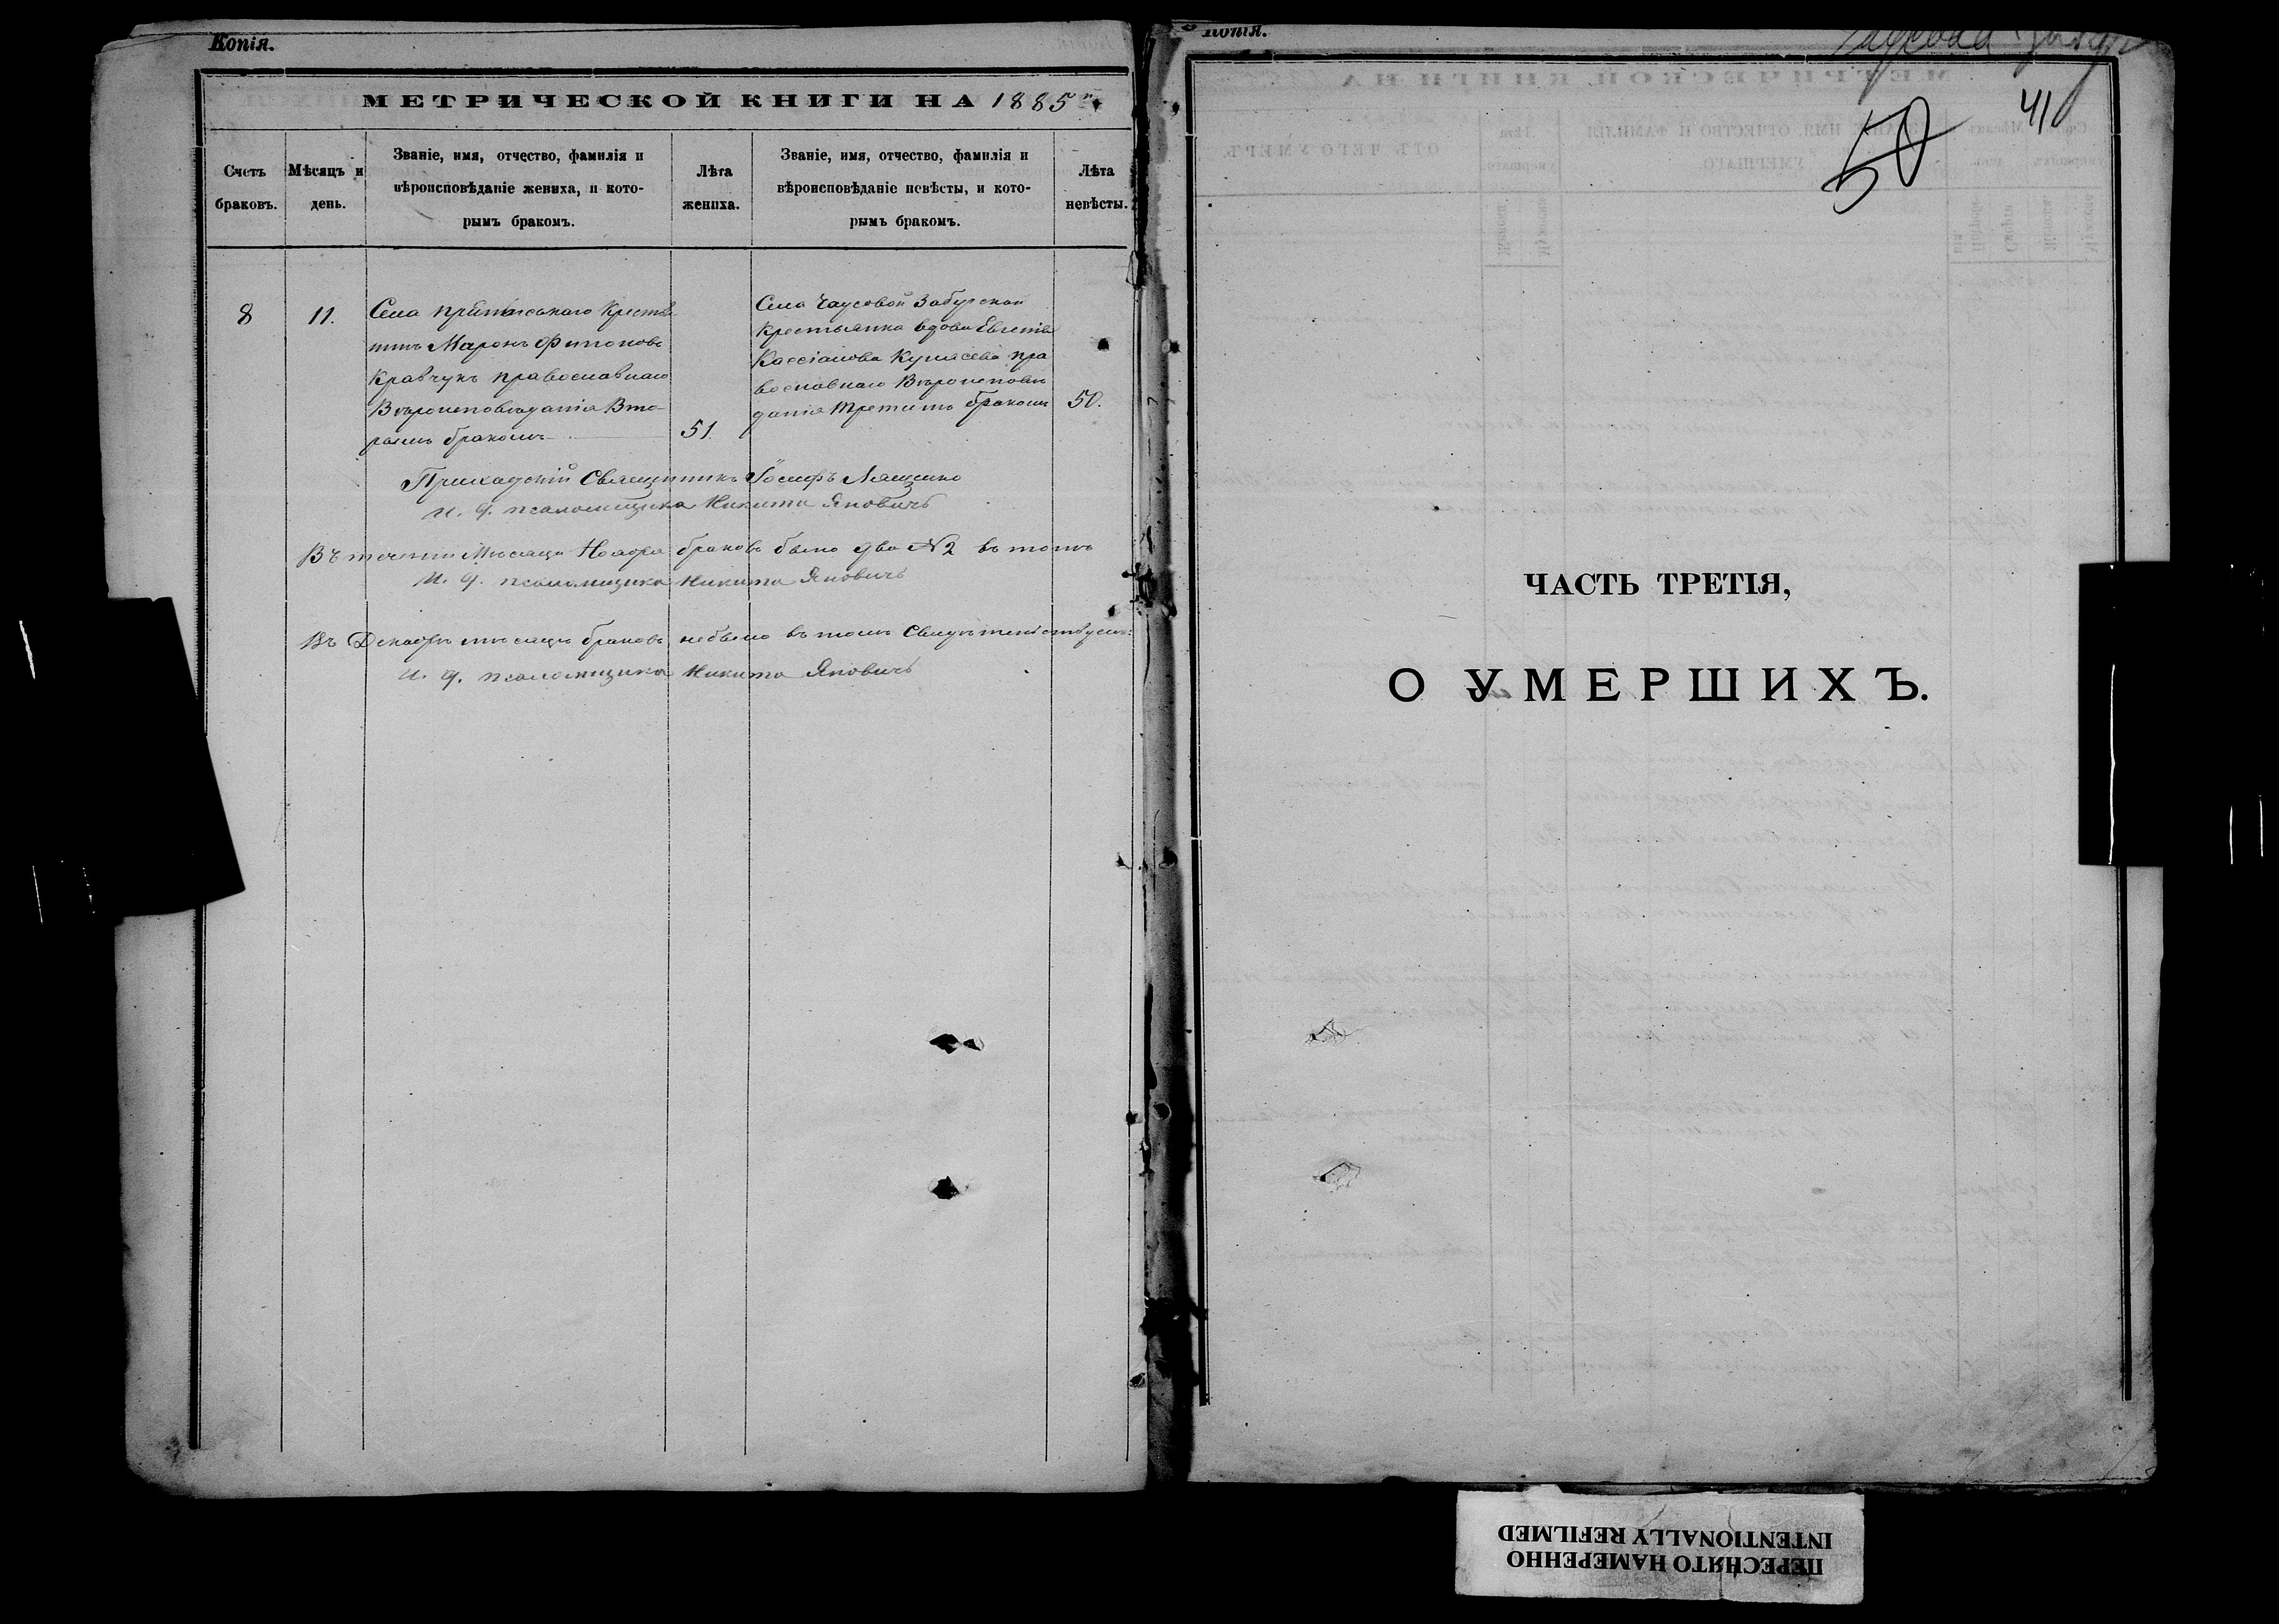 Копія.
МЕТРИЧЕСКОЙ КНИГИ НА 1885 г.
Счетъ браковъ.
Мѣсяцъ и день.
Званіе, имя, отчество, фамилія и вѣроисповѣданіе жениха, и кото-рымъ бракомъ.
Лѣта жениха.
Званіе, имя, отчество, фамилія и вѣроисповѣданіе невѣсты, и кото-рымъ бракомъ.
Лѣта невѣсты.
8
11.
Села Крестья-
нинъ Маронъ
Кравчукъ православнаго
Вѣроисповѣданія Вто-
рымъ бракомъ
51.
Села Чаусовой Забугской
Крестьянка вдова Евгенія
Кассіанова пра
вославнаго Вѣроисповѣ
данія третимъ бракомъ
50.
Приходскій Священникъ Іосифъ Лященко
И. д. псаломщика Никита Яновичъ
Въ теченіи Мѣсяца Ноября браковъ было два №2 въ томъ
И. д. псаломщика Никита Яновичъ
Въ Декабрѣ мѣсяцѣ браковъ небыло въ томъ Свидѣтельствуемъ:
И. д. псаломщика Никита Яновичъ
Копія.
41
50
ЧАСТЬ ТРЕТІЯ,
О УМЕРШИХЪ.
ПЕРЕСНЯТО НАМЕРЕННО
INTENTIONALLY REFILMED